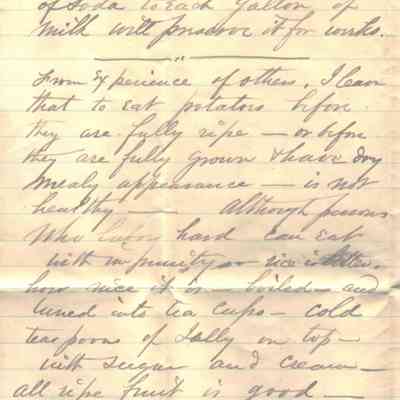 of Soda to Each Gallon of
Milk will preserve it for weeks.
From Experience of others, I learn
that to Eat potatoes before
they are fully ripe — or before
they are fully grown & have dry
mealy appearance — is not
healthy — Although persons
Who labor hard can Eat
with impunity — rice is better.
how nice it is — boiled — and
turned into tea cups — cold
teaspoons of Jelly on top —
with Sugar and cream —
all ripe fruit is good —